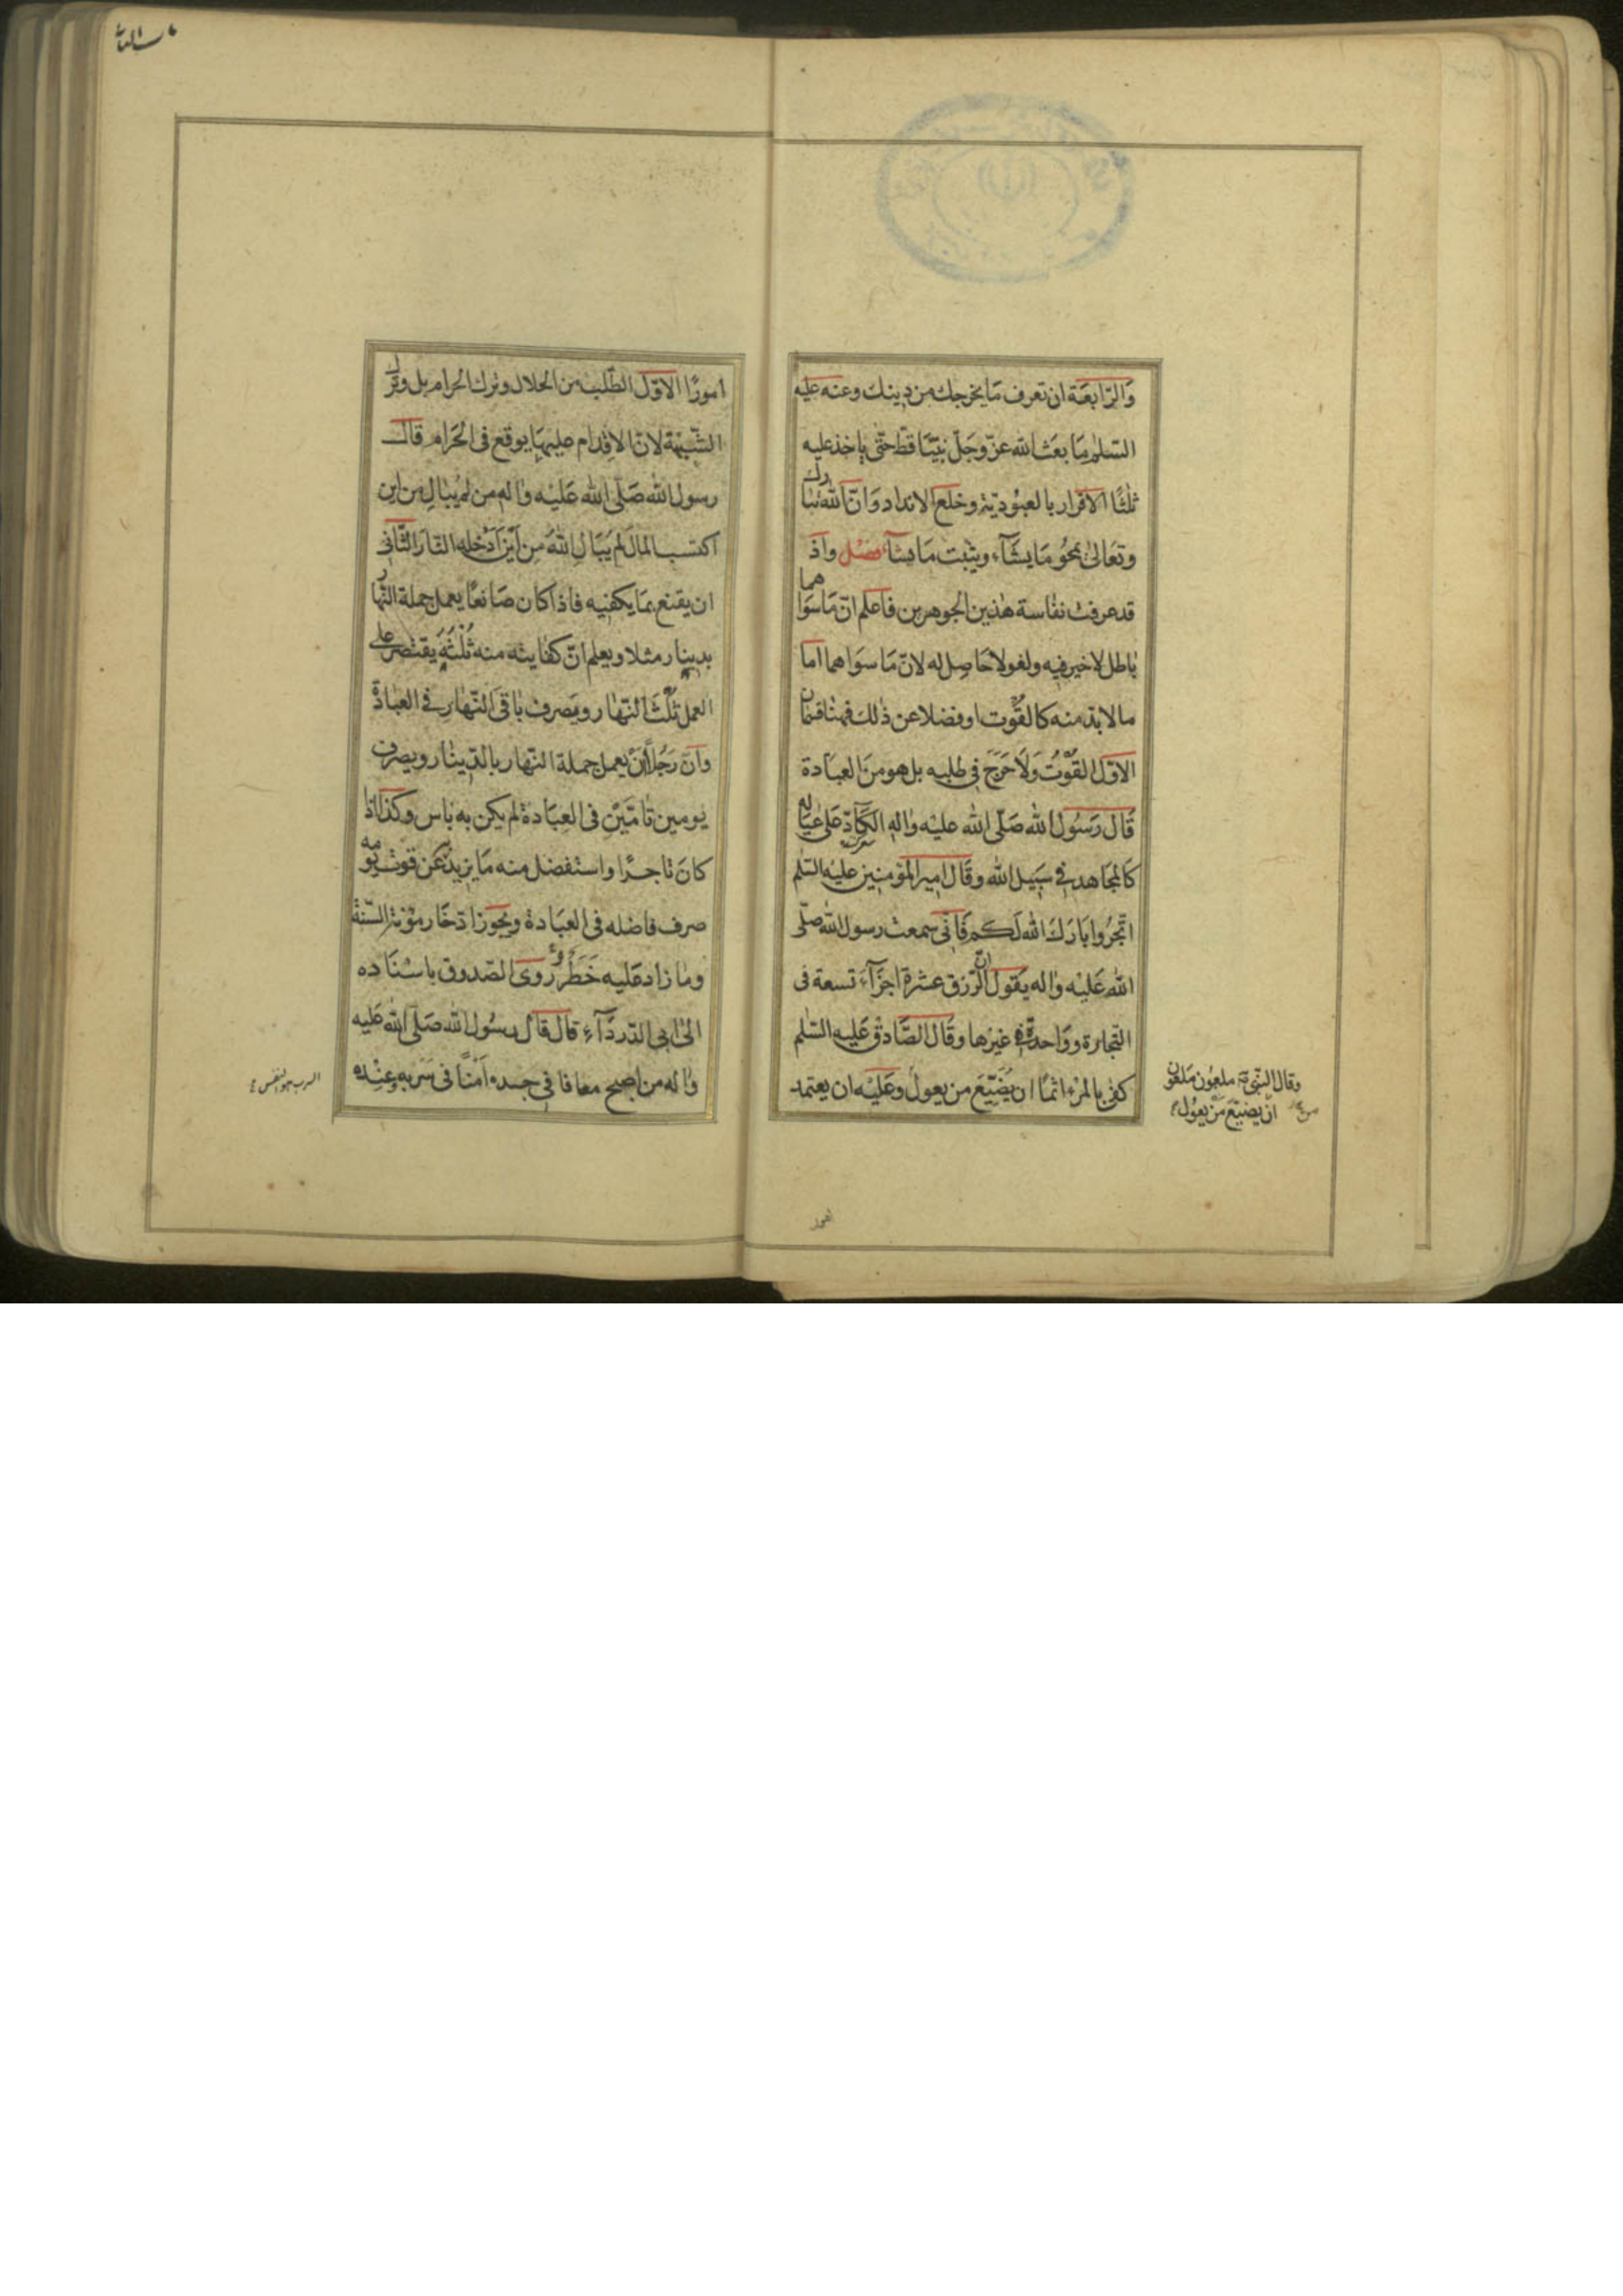 وَالرّابعَة ان تعرف مَا يخرجك من دينك وعنه عليه
السّلم مَا بعَث الله عزّ وجَلّ نبيّنًا قطّ حتّى ياخذ عليه
ثلثًا الاقرار بالعبُوديّة وخلع الانداد وَانّ الله تبارك
وتعَالى يمحُو مَا يشَآء ويثبت مَا يشآء فصْل واذ
قد عرفت نفاسة هٰذين الجوهرين فاعلم انّ مَا سوَاهما
باطل لا خير فيه ولغو لا حَاصِل له لانّ مَا سوَاهما اما
ما لا بدّ منه كالقُوْت او فضلا عن ذلك فهنا قسمان
الاوّل القُوْتُ وَلَا حَرَجَ في طلبه بل هو منَ العبَادة
قَال رَسُول الله صَلّى الله عليْه واله الكادّ عَلى عيَاله
كَالمجَاهد في سَبيل الله وقَال امير المؤمنين عليْه السّلم
اتّجرُوا بَارَكَ الله لَكم فَانّى سمعت رسول الله صلّى
الله عَليْه واله يَقول انّ الرّزق عشرة اجزَآء تسعة فى
التّجارة وواحدة في غيْرها وقَال الصَّادق عَليه السّلم
كفى بالمرْء اثمًا ان يُضَيّعَ من يعول وعَليْه ان يعتمد
وقال النّبىّ ص ملعُون ملعُون
من يضيّع مَنْ يعُول
امورًا الاوّل الطّلب من الحلال وترك الحرام بل وترك
الشّبهة لانّ الاقدام عليهَا يوقع فى الحَرام قالـ
رسول الله صَلّى الله عَليْه واله من لمْ يبَالِ من اين
اكتسب المالَ لمْ يبَال الله مِن اَيْنَ اَدْخله النّار الثّانى
ان يقنع بمَا يكفيه فاذا كان صَانعًا يعمل جملة النّهار
بدينار مثلا ويعلم انّ كفايته منه ثُلْثه يقتصر على
العمل ثلْثَ النّهار ويَصرف باقى النّهار فى العبَادة
وانّ رَجُلًا يعمل جملة النّهار بالدّينار ويصرف
يومين تامّيْن فى العبَادة لم يكن به بَاس وكذا اذا
كانَ تاجرًا واستفضل منه مَا يزيد عَن قوت يومه
صرف فاضله فى العبَادة ويجُوز ادّخَار مؤنة السّنة
وما زاد عَليه خَطَر روى الصّدوق باسْنَاده
الى ابى الدّردَآء قال قال رسُول الله صَلّى الله عَليه
واله من اصبح معافا فى جسده اَمنًا فى سَربه وعنْده
السرب هو النفس